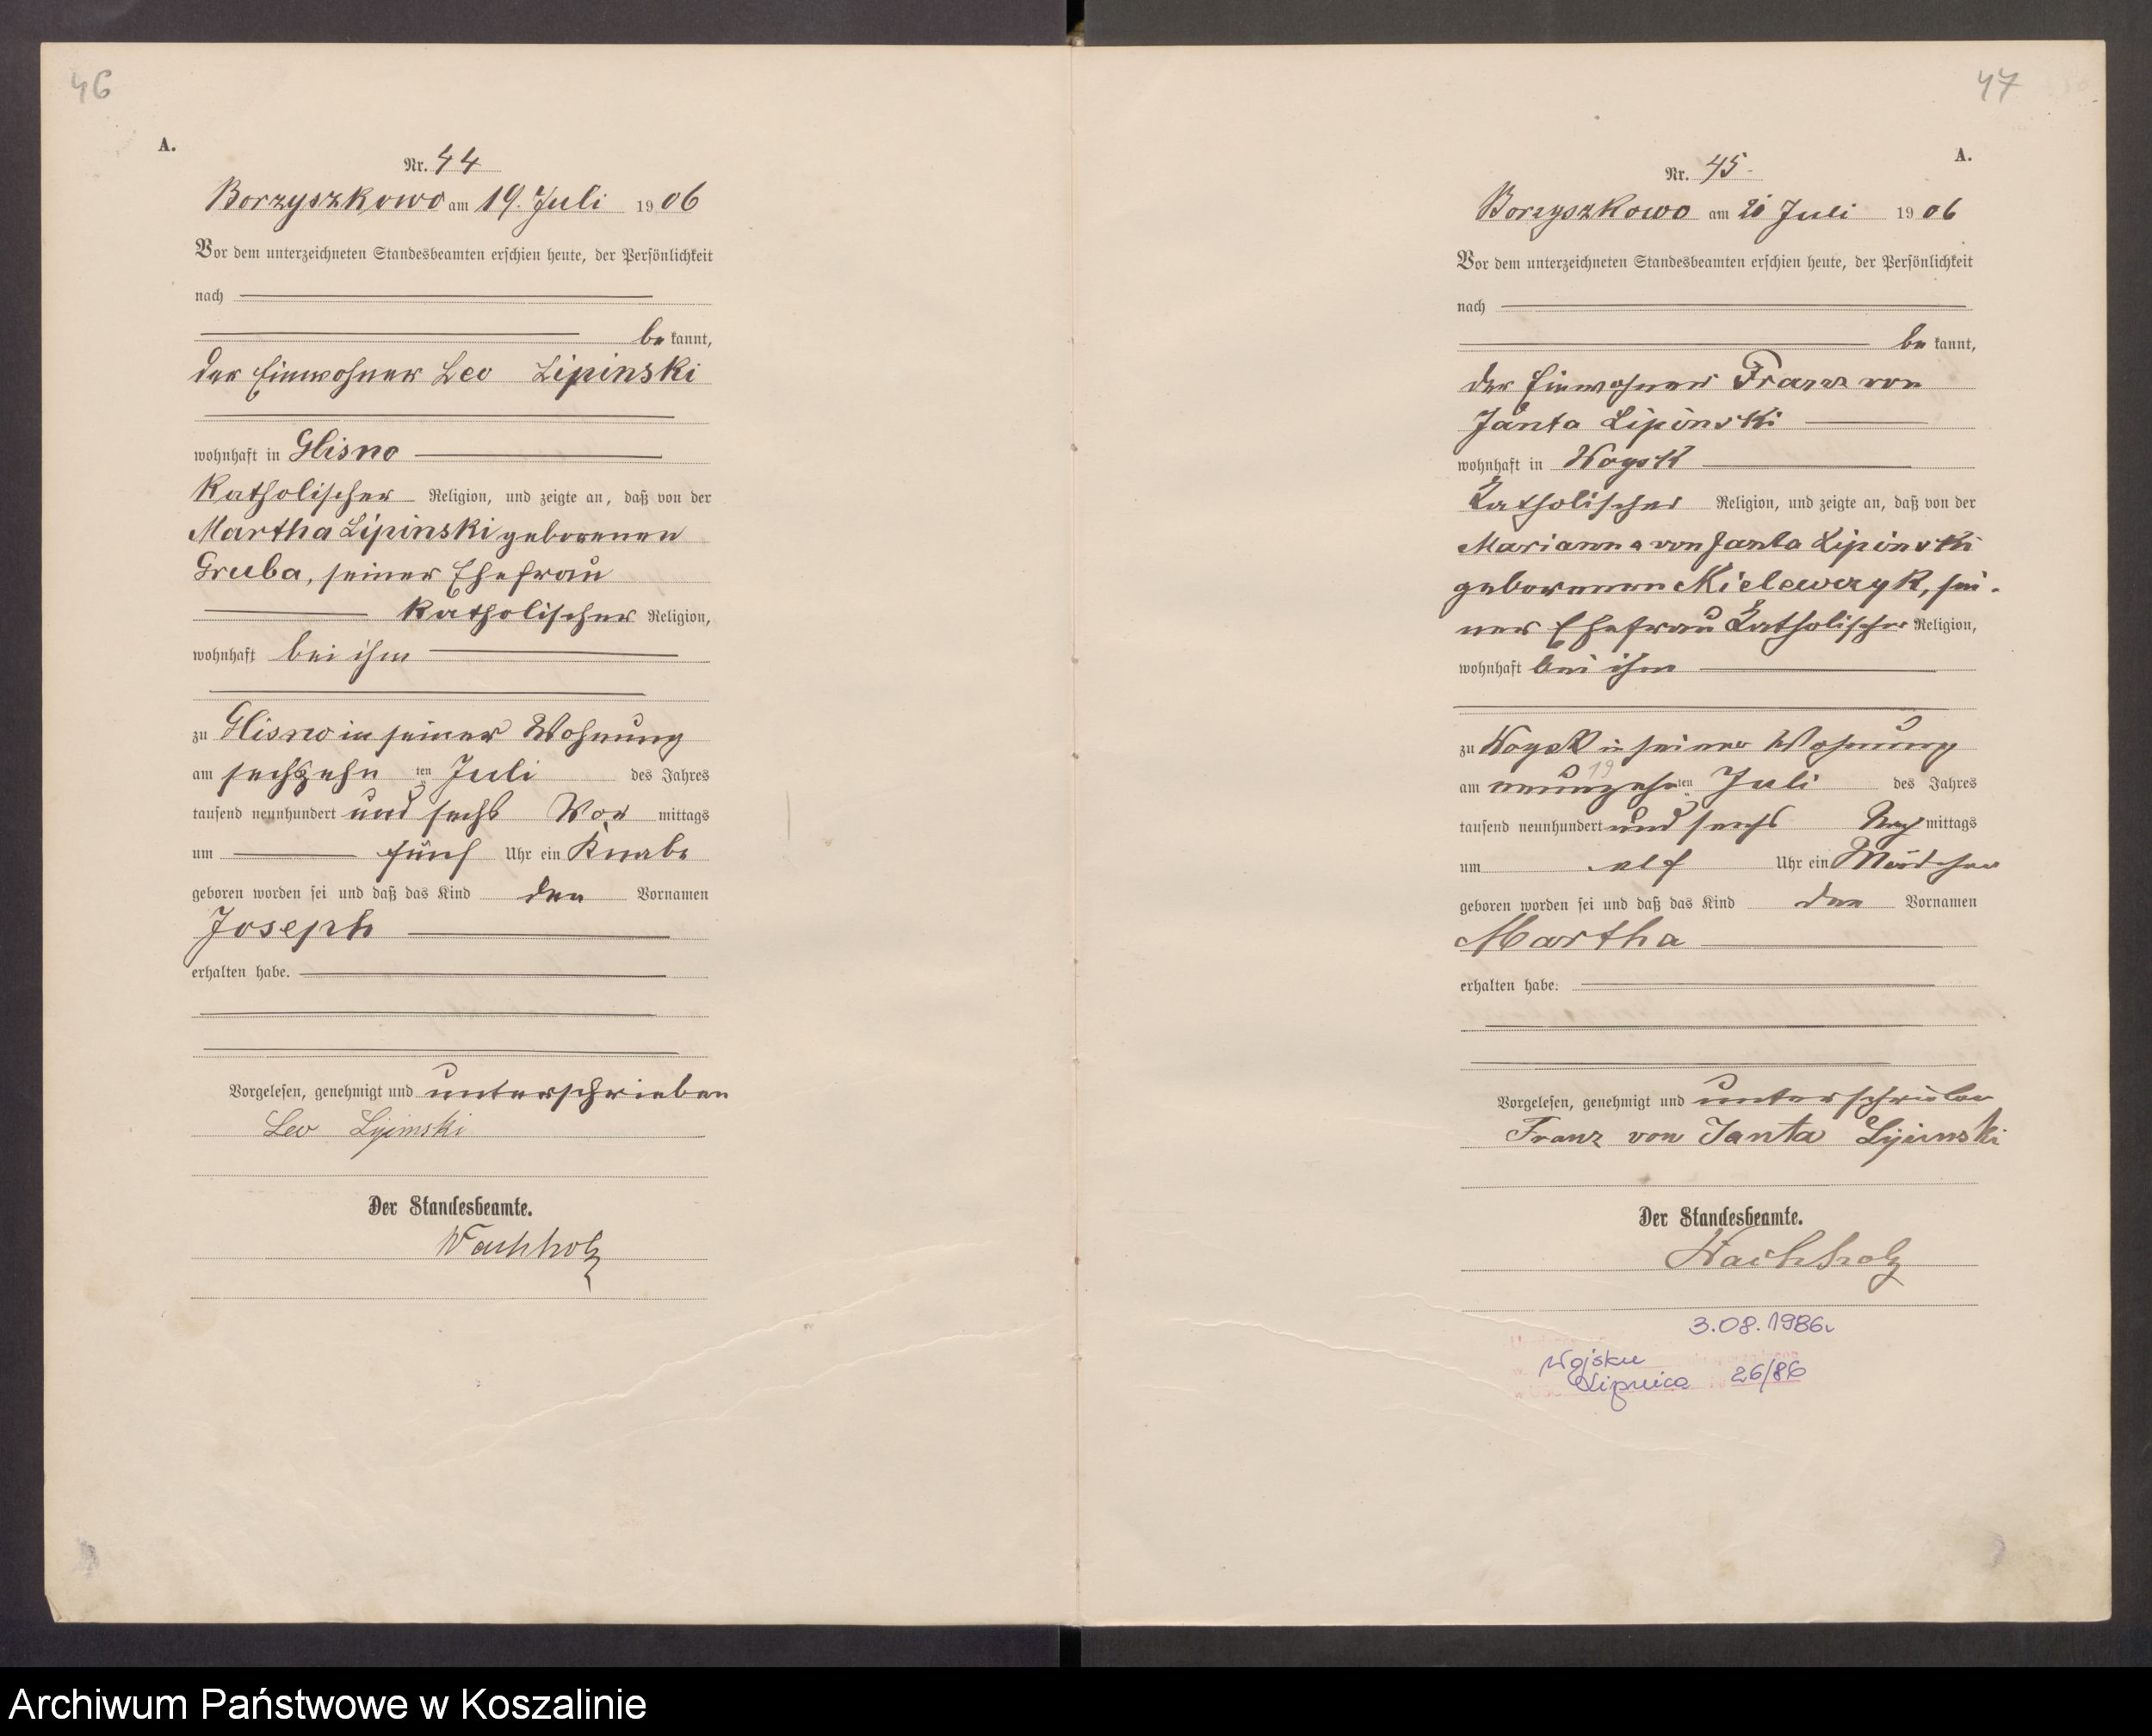 46
A.
Nr. 44
Borzyszkowo am 19. Juli 1906
Vor dem unterzeichneten Standesbeamten erschien heute, der Persönlichkeit
nach
be kannt,
der Einwohner Leo Lipinski
wohnhaft in Glisno
katholischer Religion, und zeigte an, daß von der
Martha Lipinski geborenen
Gruba, seiner Ehefrau
katholischer Religion,
wohnhaft bei ihm
zu Glisno in seiner Wohnung
am sechszehn ten Juli des Jahres
tausend neunhundert und sechs Vor mittags
um fünf Uhr ein Knabe
geboren worden sei und daß das Kind den Vornamen
Joseph
erhalten habe.
Vorgelesen, genehmigt und unterschrieben
Leo Lipinski
Der Standesbeamte.
Wachholz
47
A.
Nr. 45
Borzyszkowo am 20 Juli 1906
Vor dem unterzeichneten Standesbeamten erschien heute, der Persönlichkeit
nach
be kannt,
der Einwohner Franz von
Janta Lipinski
wohnhaft in Woysk
katholischer Religion, und zeigte an, daß von der
Marianna von Janta Lipinski
geborenen Kielewczyk, sei-
ner Ehefrau katholischer Religion,
wohnhaft bei ihm
zu Woysk in seiner Wohnung
19
am neunzehn ten Juli des Jahres
tausend neunhundert und sechs Nach mittags
um elf Uhr ein Mädchen
geboren worden sei und daß das Kind den Vornamen
Martha
erhalten habe.
Vorgelesen, genehmigt und unterschrieben
Franz von Janta Lipinski
Der Standesbeamte.
Wachholz
3.08.1986r
Wojsku
Lipnica 26/86
Archiwum Państwowe w Koszalinie